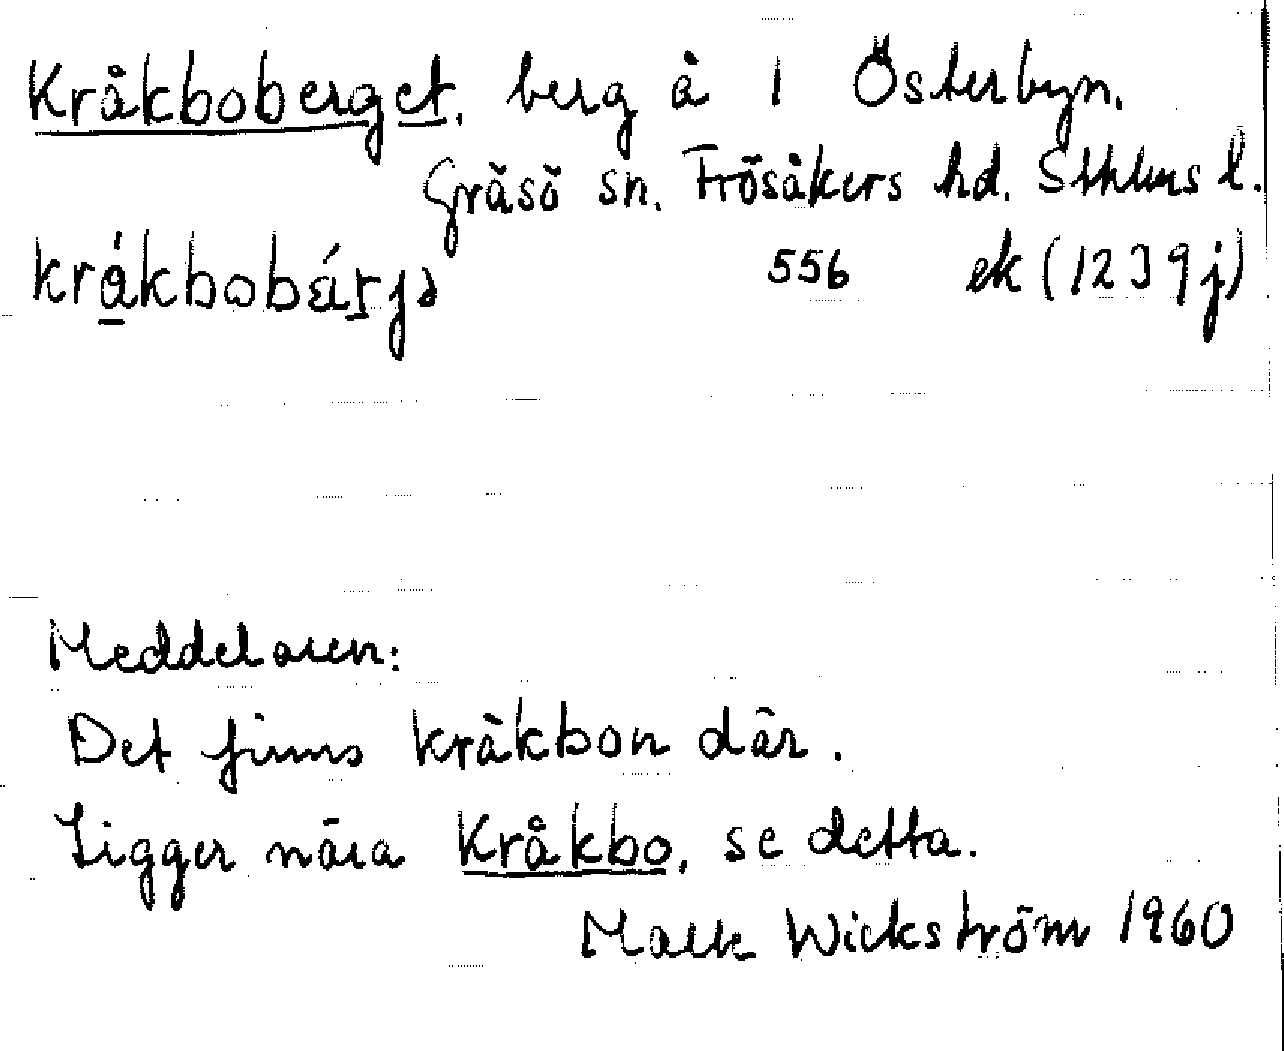 Kråkboberget, berg å 1 Österbyn.
Gräsö sn. Frösåkers hd. Sthlms l.
kråkbobárjə 556 ek (1239j)
Meddelaren:
Det finns kråkbon där.
Ligger nära Kråkbo, se detta.
Wickström 1960